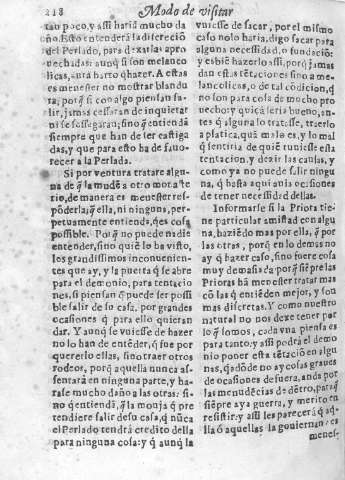 218 Modo de visitar
tan poco, y assi haria mucho da
ño. Esto entenderá la discrecion
del Perlado, para dexarlas aprove
chadas: aunq̃ si son melanco
licas, aurá harto q̃ hazer. A estas
es menester no mostrar blandu
ra, porq̃ si con algo piensan sa-
lir, jamas cessaran de inquietar
ni se sossegaran, sino q̃ entiendã
siempre que han de ser castiga
das, y que para esto ha de fauo-
recer a la Perlada.
Si por ventura tratare algu-
na de q̃ la mudẽ a otro monaste
rio, de manera es menester res-
põderla, q̃ ella, ni ninguna, per-
petuamente entienda, q̃ es cosa
possible. Porq̃ no puede nadie
entender, sino quiẽ lo ha visto,
los grandissimos inconuenien-
tes que ay, y la puerta q̃ se abre
para el demonio, para tentacio-
nes, si piensan q̃ puede ser possi
ble salir de su casa, por grandes
ocasiones q̃ para ello quieran
dar. Y aunq̃ se vuiesse de hazer
no lo han de entẽder, q̃ fue por
quererlo ellas, sino traer otros
rodeos, porq̃ aquella nunca as-
sentará en ninguna parte, y ha-
rase mucho daño a las otras: si-
no q̃ entiendã, q̃ la monja q̃ pre
tendiere salir de su casa, q̃ nũca
el Perlado tendrá credito della
para ninguna cosa: y q̃ aunq̃ la
vuiesse de sacar, por el mismo
caso no lo haria, digo sacar para
alguna necessidad, o fundaciõ:
y es biẽ hazerlo assi, porq̃ jamas
dan estas tẽtaciones sino a me-
lancolicas, o de tal cõdicion, q̃
no son para cosa de mucho pro
uecho: y quiçá seria bueno, an-
tes q̃ alguna lo tratasse, traerlo
a platica, quã malo es, y lo mal
q̃ sentiria de quiẽ tuuiesse esta
tentacion, y dezir las causas, y
como ya no puede salir ningu
na, q̃ hasta aqui auia ocasiones
de tener necessidad dellas.
Informarse si la Priora tie-
ne particular amistad con algu
na, haziẽdo mas por ella, q̃ por
las otras, porq̃ en lo demas no
ay q̃ hazer caso, sino fuere cosa
muy demasiada porq̃ siẽpre las
Prioras hã menester tratar mas
cõ las q̃ entiẽden mejor, y son
mas discretas. Y como nuestro
natural no nos dexe tener por
lo q̃ somos, cada vna piensa es
para tanto: y assi podrá el demo
nio poner esta tẽtaciõ en algu-
nas, q̃ adõde no ay cosas graues
de ocasiones de fuera, anda por
las menudẽcias de dẽtro, para q̃
siẽpre aya guerra, y merito en
resistir: y assi les parecerá q̃ aq̃-
lla ó aquellas la gouiernan: es
menes-